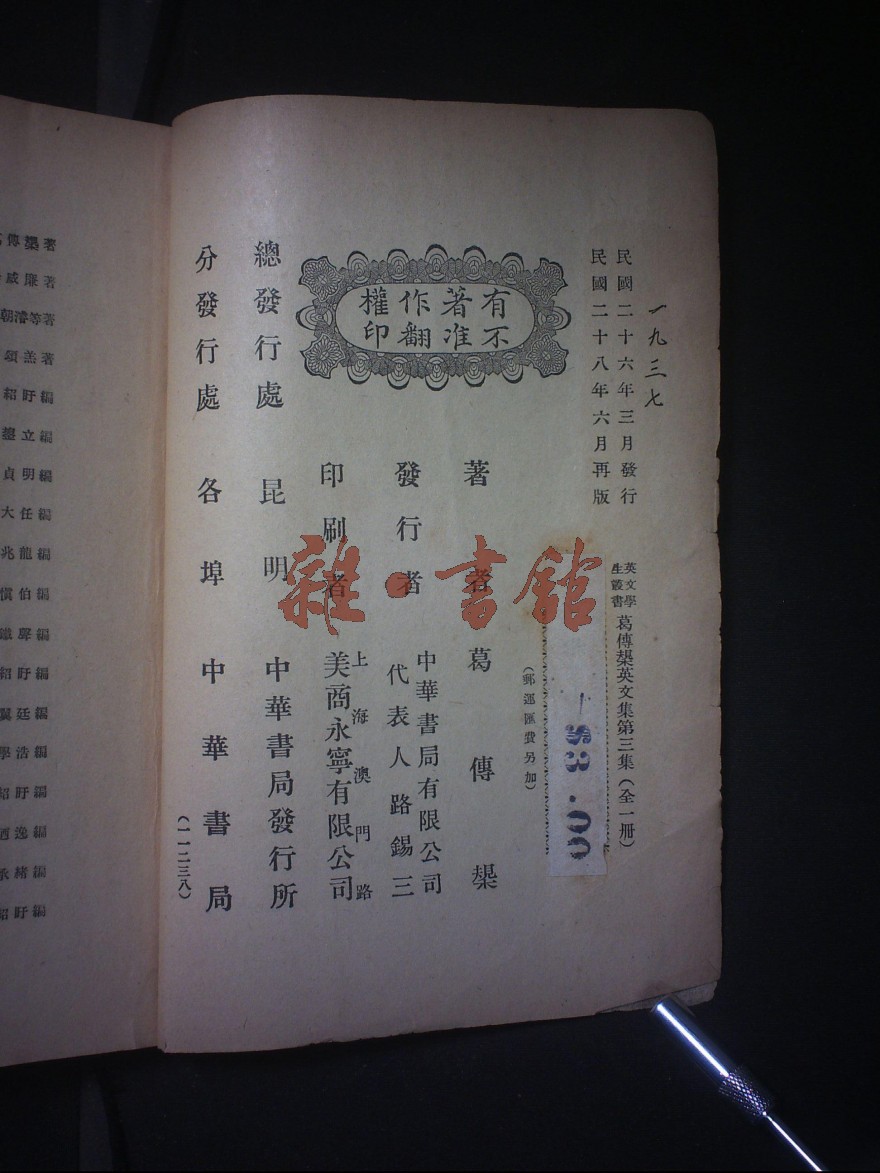 一九三七
民國二十六年三月發行
民國二十八年六月再版
英文學生叢書
葛傳槼英文集第三集（全一冊）
$3.00
（郵運匯費另加）
有著作權
不准翻印
著者 葛傳槼
發行者 中華書局有限公司
代表人路錫三
印刷者 上海澳門路
美商永寧有限公司
總發行處 昆明 中華書局發行所
分發行處 各埠 中華書局
（一一二三八）
雜·書館
傳槼著
威廉著
等著
著
紹盱編
立編
貞明編
大任編
兆龍編
伯編
編
紹盱編
廷編
學浩編
紹盱編
逸編
承緒編
紹盱編